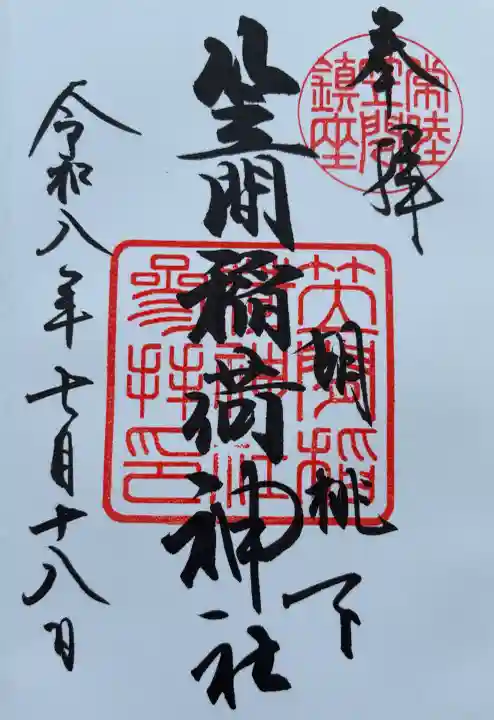 奉拝
常陸
笠間
鎮座
胡桃下
笠間稲荷神社
笠間稲
荷神社
参拝印
令和八年七月十八日